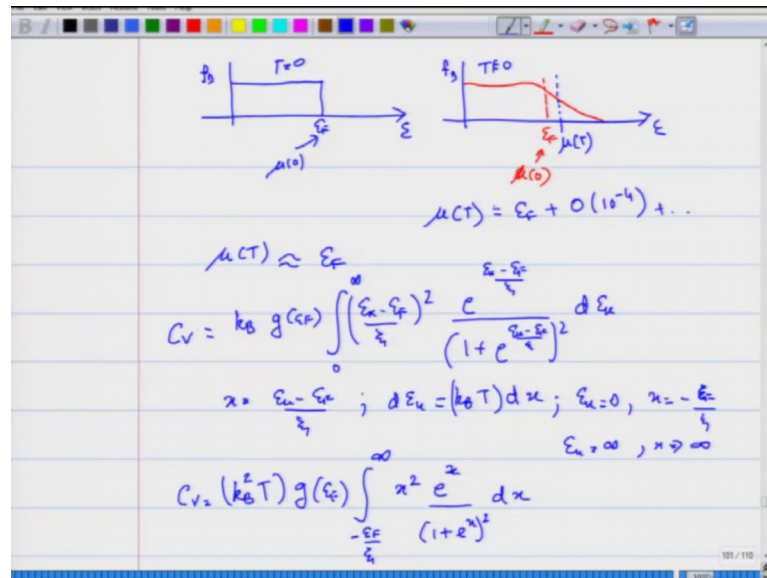 f_D T=0 ε_F ε
μ(0)
f_D T≠0 ε_F μ(T) ε
μ(0)
μ(T) = ε_F + O(10^{-4}) + ..
μ(T) ≈ ε_F
C_V = k_B g(ε_F) ∫_0^∞ ((ε_k - ε_F)/ξ)^2 e^{(ε_k - ε_F)/ξ} / (1 + e^{(ε_k - ε_F)/ξ})^2 dε_k
x = (ε_k - ε_F)/ξ ; dε_k = (k_B T) dx ; ε_k = 0, x = -ε_F/ξ
ε_k = ∞, x ⇒ ∞
C_V = (k_B^2 T) g(ε_F) ∫_{-ε_F/ξ}^∞ x^2 e^x / (1 + e^x)^2 dx
101 / 110